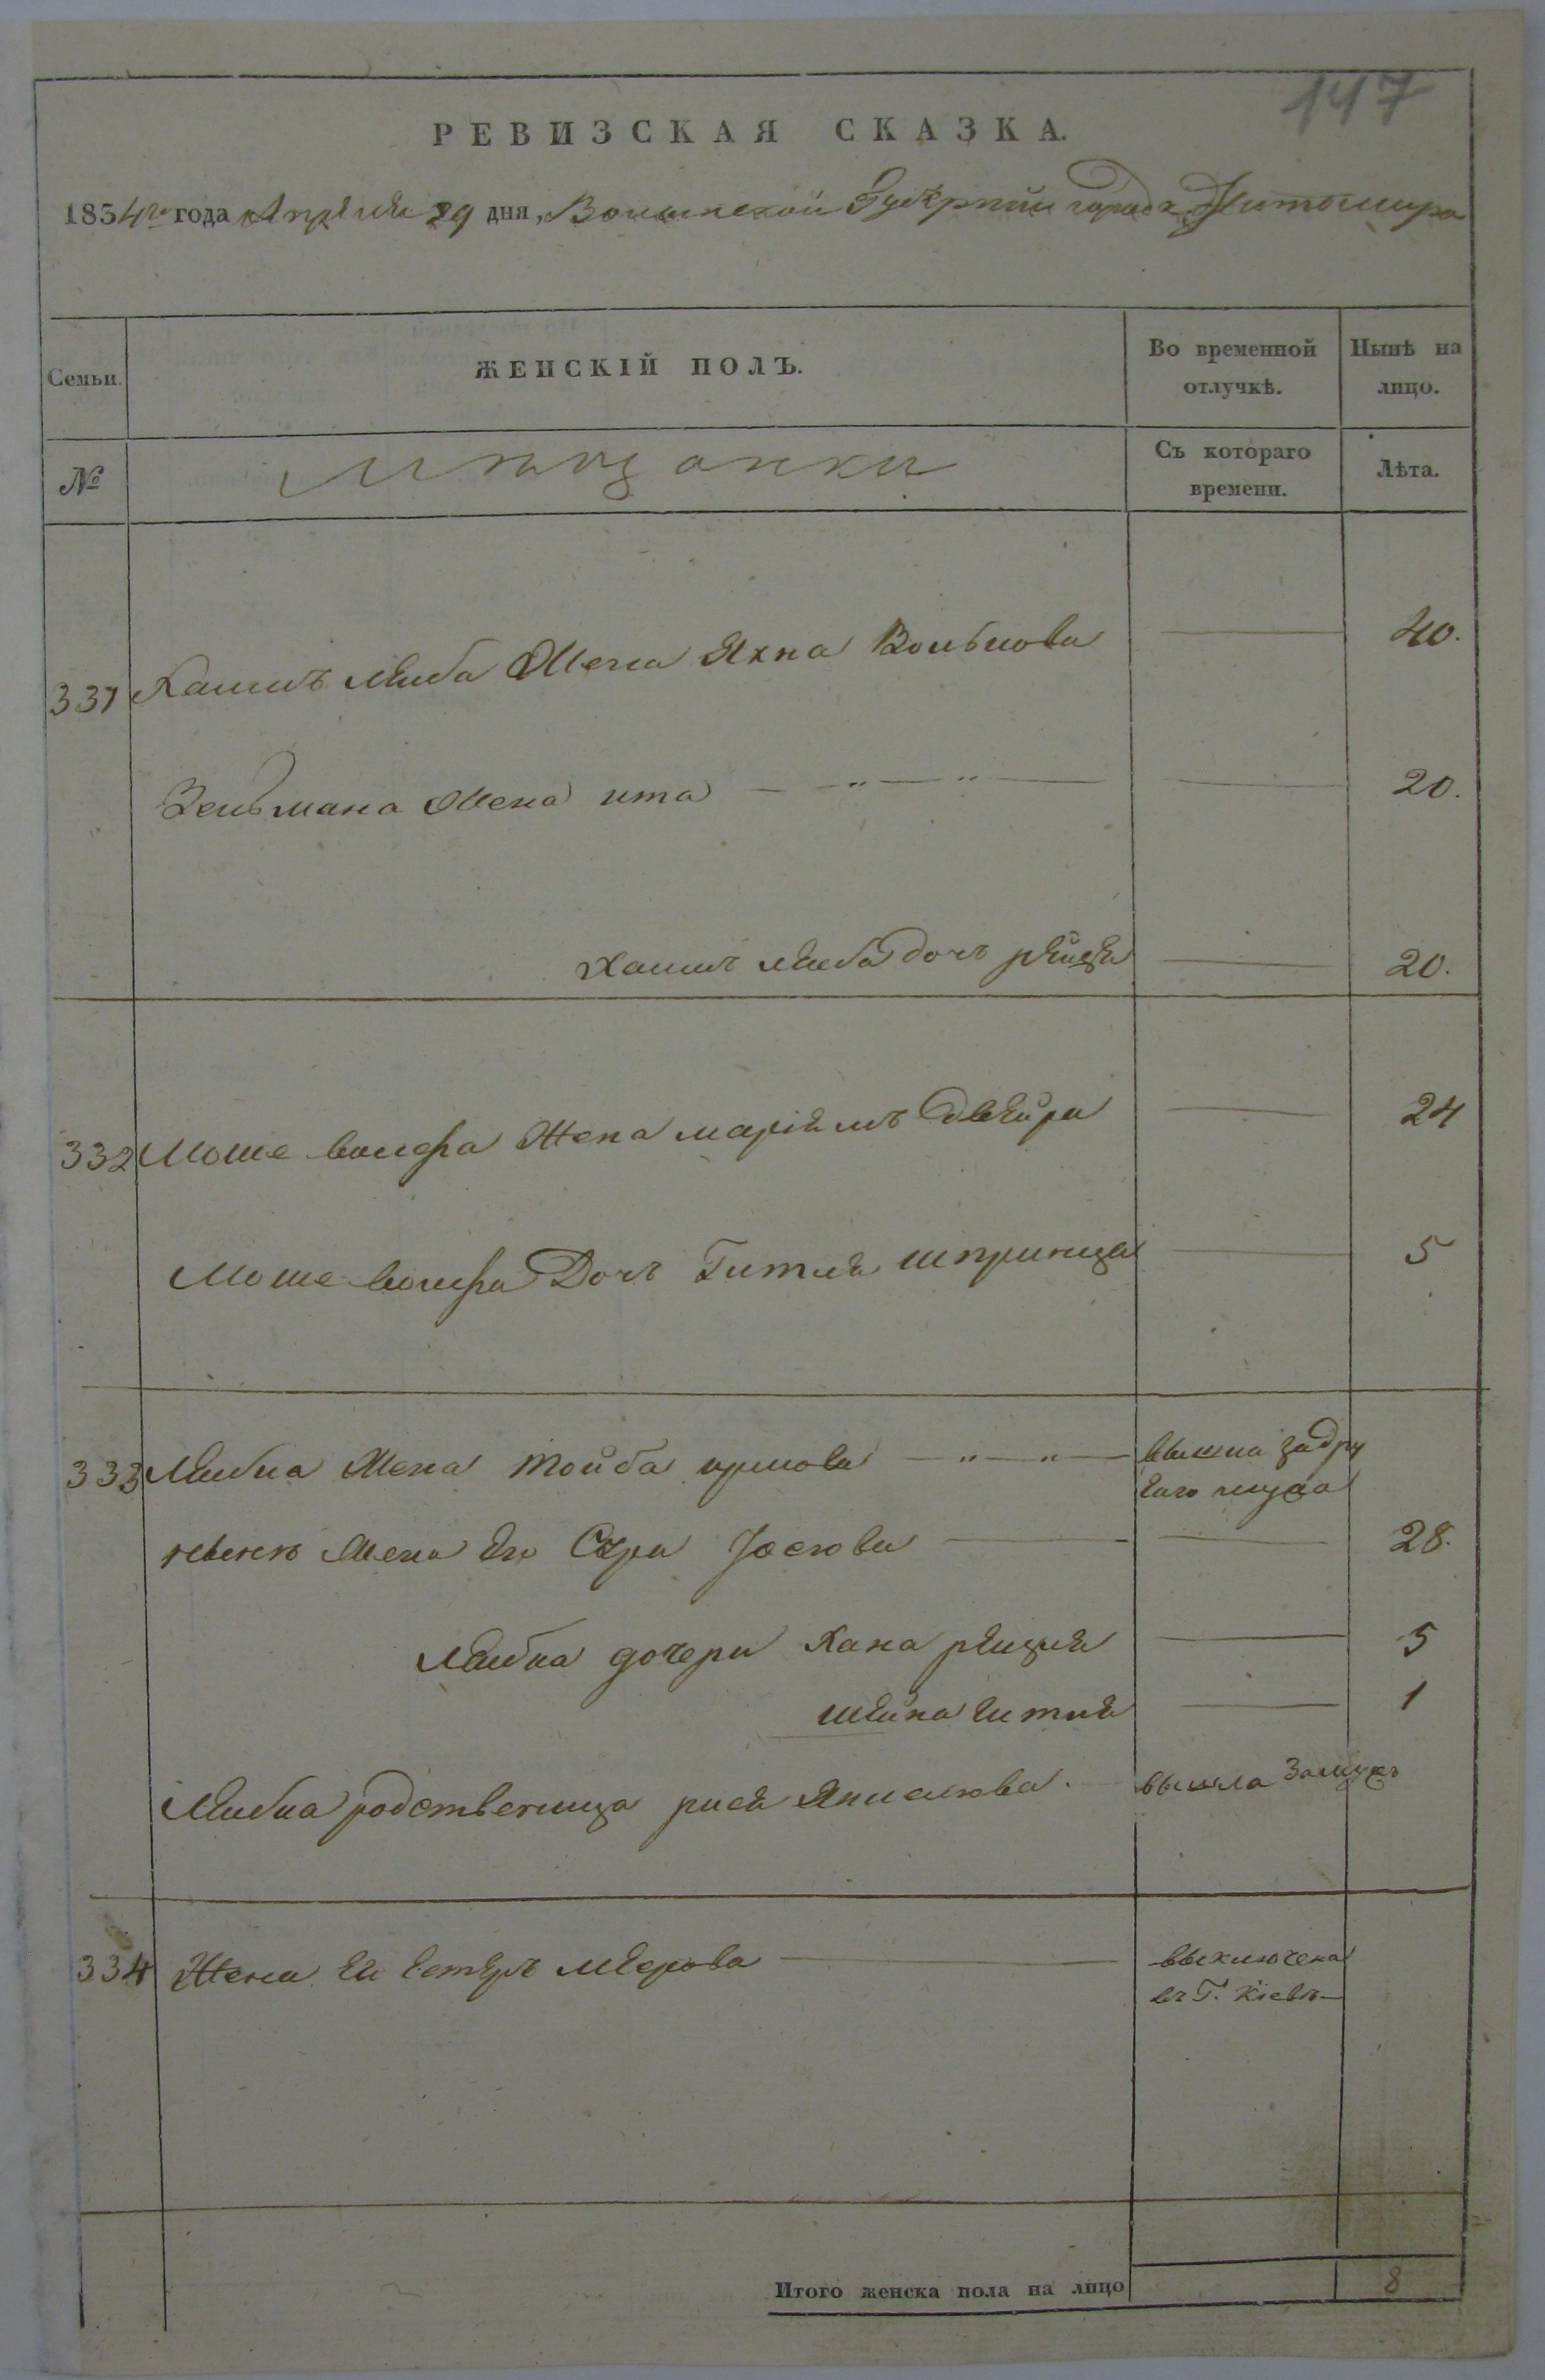 147
РЕВИЗСКАЯ СКАЗКА.
1854го года Апреля 29 дня, Волынской Губернии города Житомира
Семьи.
ЖЕНСКІЙ ПОЛЪ.
Во временной отлучкѣ.
Нынѣ на лицо.
№
Мѣщанки
Съ котораго времени.
Лѣта.
331 Хаимъ Лейба Жена Яхна Вольпова — 40.
Зельмана Жена ита — " — " — — 20.
Хаимъ Лейба дочь рейзя — 20.
332 Моше волфа Жена маріемъ двейра — 24
Моше волфа Дочь Гитля шпринца — 5
333 Лейбы Жена Тойба — " — " — вышла за другаго мужа
Жена его Сура Іосева — — 28.
Лейбы дочери Хана рейзля — 5
шейна гитля — 1
Лейбы родственица рися вышла замужъ
334 Жена ей естеръ меерова — выключена въ Г. Кіевѣ —
Итого женска пола на лицо 8